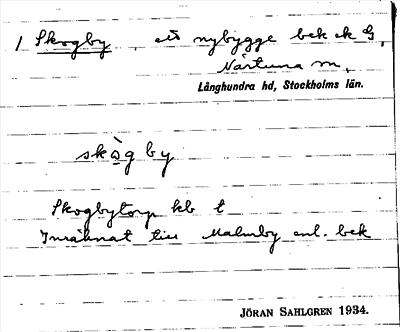 1 Skogby, ett nybygge bek ek G,
Närtuna sn,
Långhundra hd, Stockholms län.
skògby
Skogbytorp kb t
Inräknat till Malmby enl. bek
JÖRAN SAHLGREN 1934.